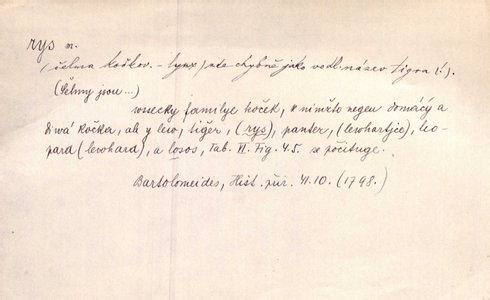 rys m.
(šelma kočkov. – lynx) zde chybně jako vedl. název tigra (!).
(Šelmy jsou...)
wssecky familye koček, k nimžto negen domácý a
diwá Kočka, ale y lew, tiger, (rys), panter, (lewhartjce), leo-
pard (lewhard), a losos, Tab. II. Fig. 4.5. se počituge.
Bartolomeides, Hist. přir. VI. 10. (1798.)